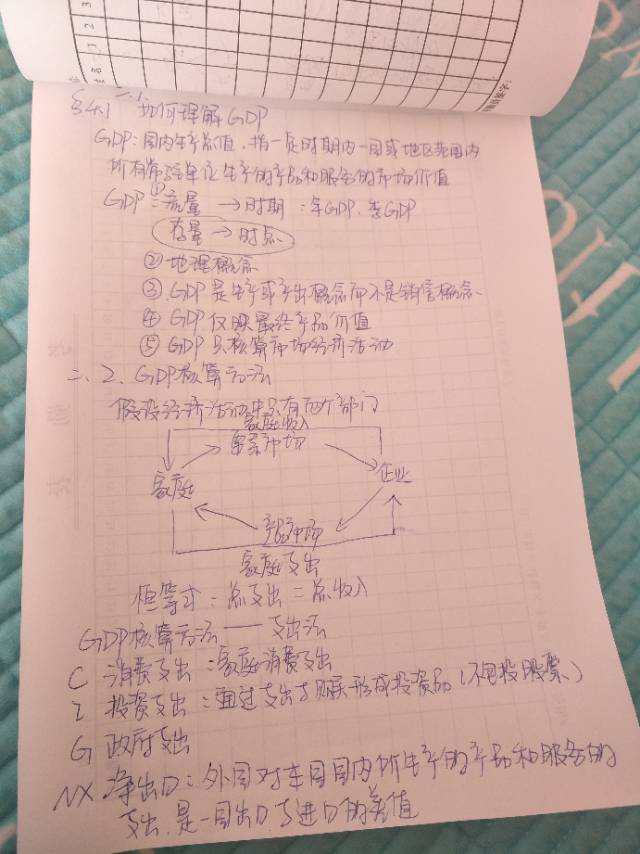 §4.1 一、1 如何理解GDP
GDP:国内生产总值,指一定时期内一国或地区范围内
所有常驻单位生产的产品和服务的市场价值
GDP:①流量→时期:年GDP,季GDP
存量→时点
②地理概念
③GDP是生产或产出概念而不是销售概念
④GDP仅映最终产品价值
⑤GDP只核算市场经济活动
二、2、GDP核算方法
假设经济活动中只有两个部门
家庭收入
要素市场
家庭 企业
产品市场
家庭支出
恒等式:总支出=总收入
GDP核算方法——支出法
C 消费支出:家庭消费支出
I 投资支出:通过支出购买形成投资品(不包投股票)
G 政府支出
NX 净出口:外国对本国国内所生产的产品和服务的
支出,是一国出口与进口的差值